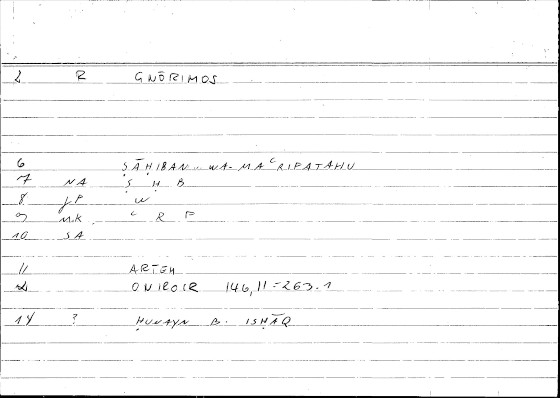 2 R GNŌRIMOS
6 ṢĀḤIBAN.. WA-MAʿRIFATAHU
7 NA Ṣ Ḥ B
8 JP W
9 MK. ʿ R F
10 SA
11 ARTEM
12 ONIROCR 146,11=263.1
14 ? ḤUNAYN B. ISḤĀQ